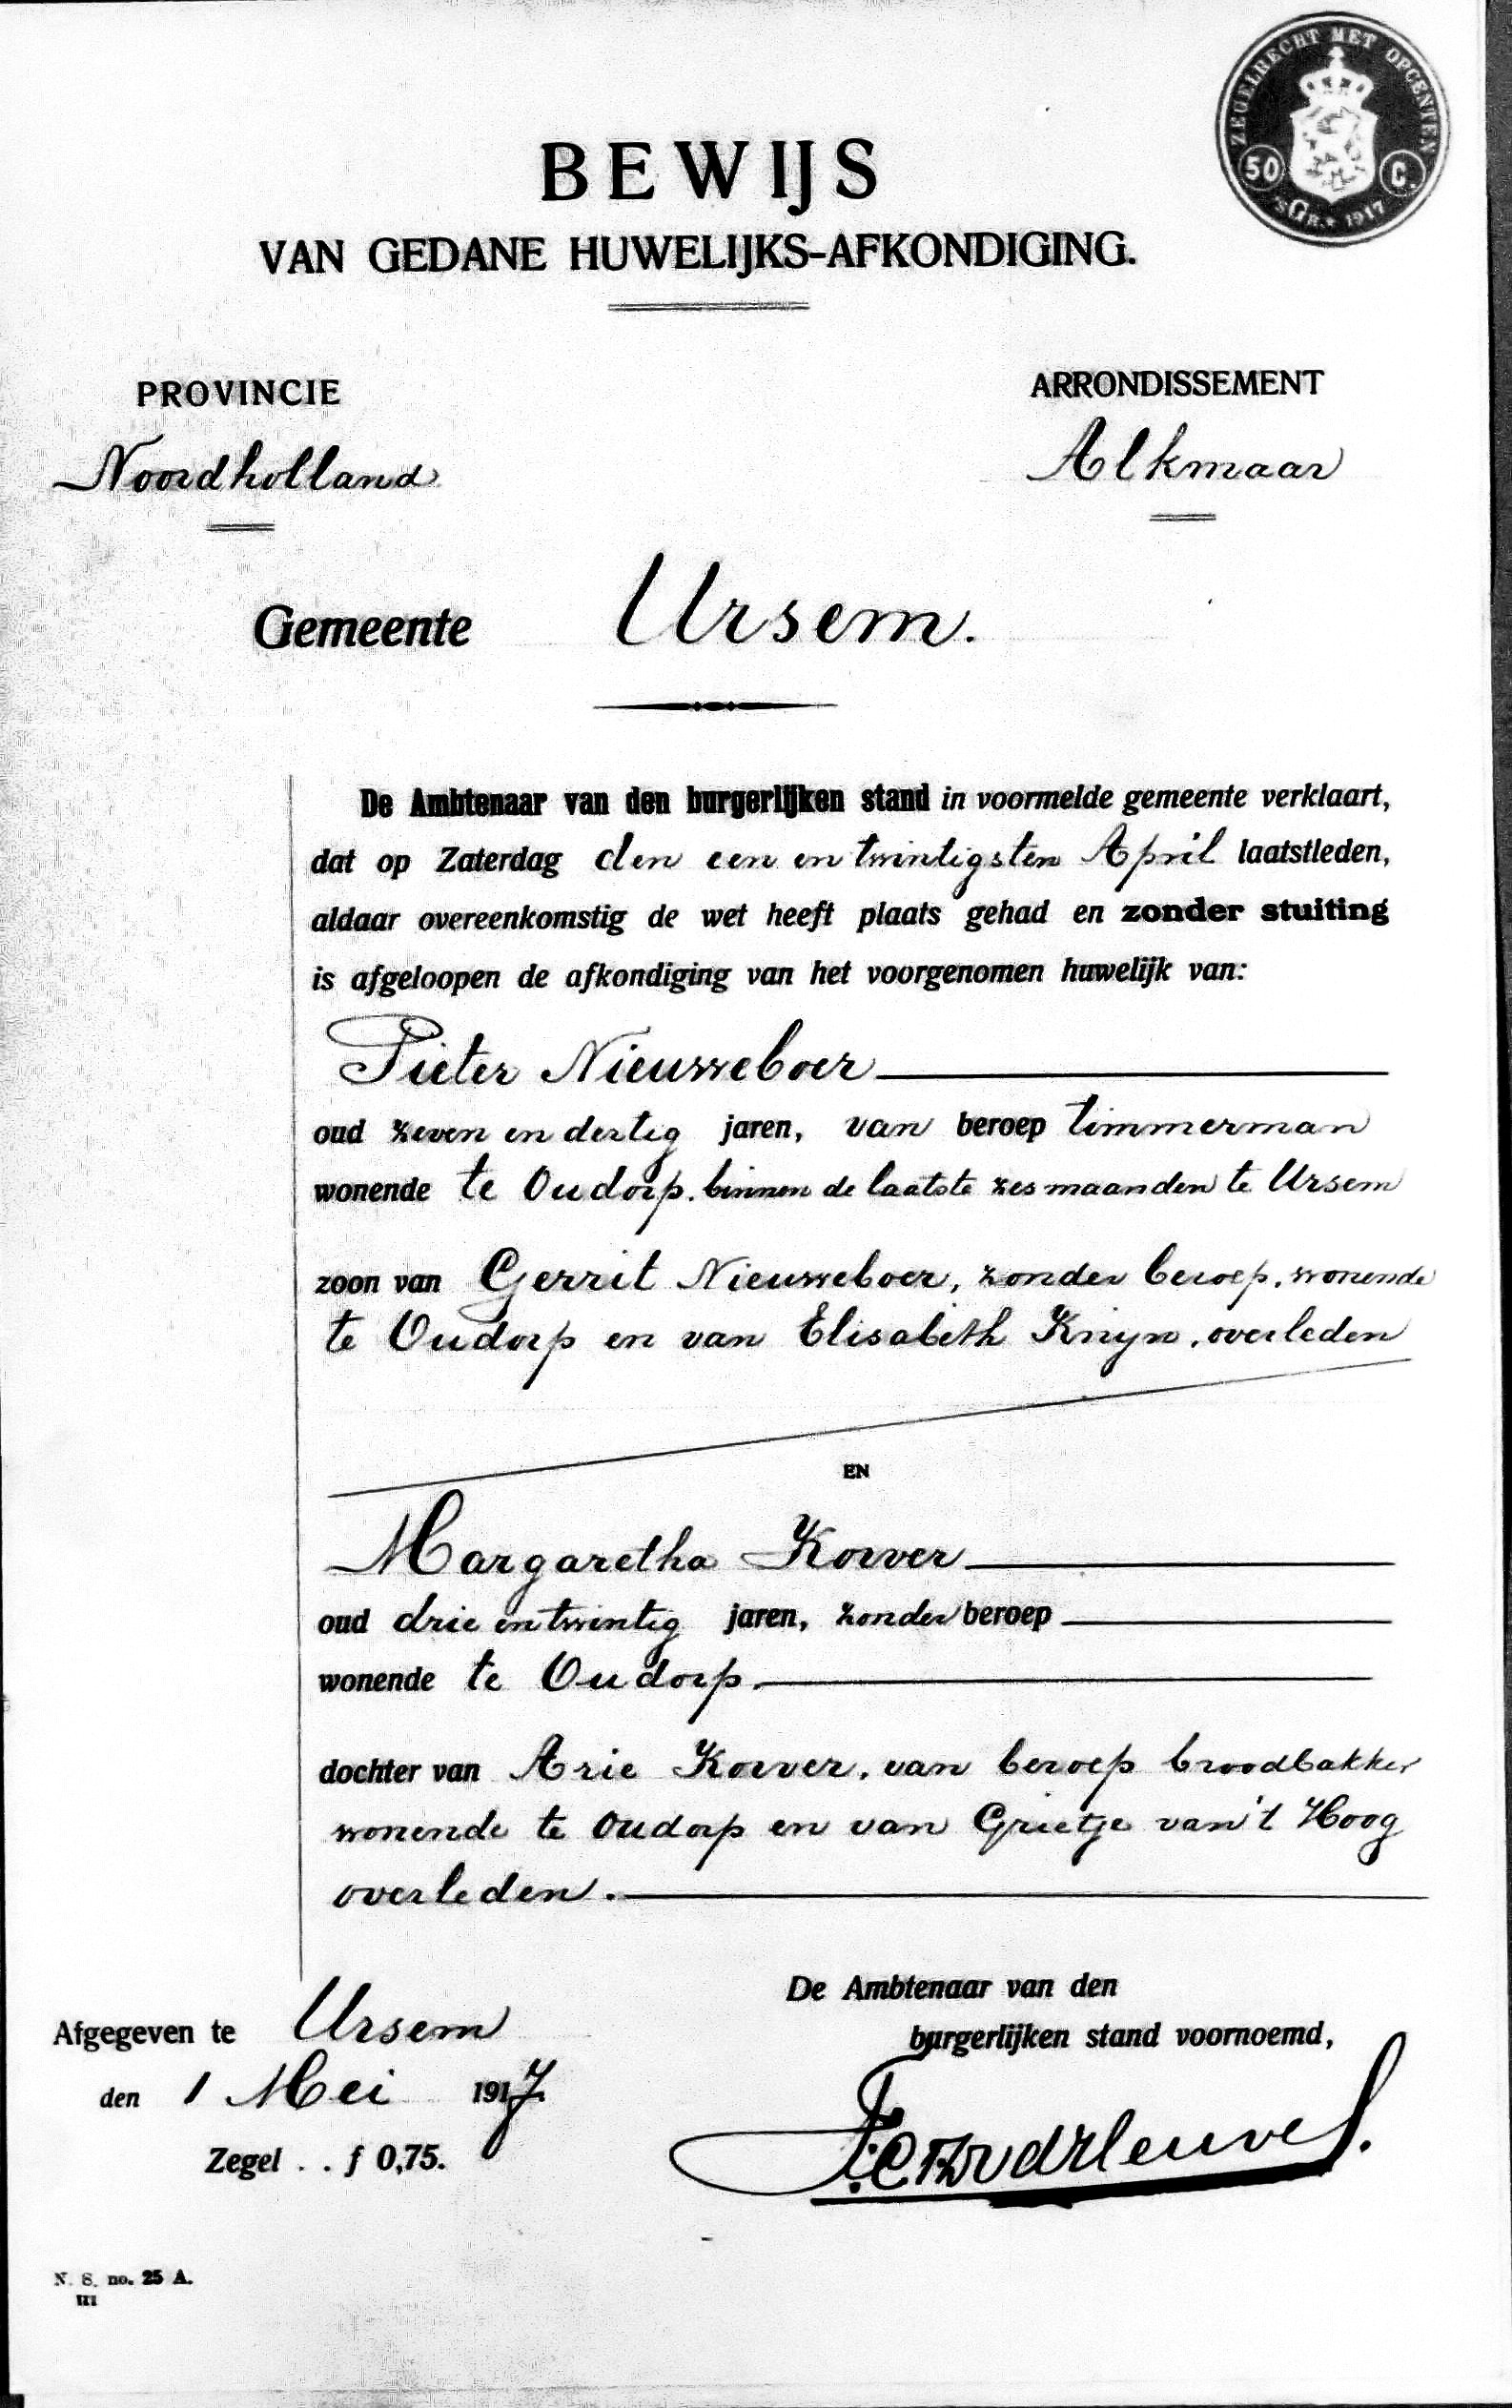 ZEGELRECHT MET OPCENTEN
50 C.
'sGR. 1917
BEWIJS
VAN GEDANE HUWELIJKS-AFKONDIGING.
PROVINCIE
ARRONDISSEMENT
Noordholland
Alkmaar
Gemeente Ursem.
De Ambtenaar van den burgerlijken stand in voormelde gemeente verklaart,
dat op Zaterdag den een en twintigsten April laatstleden,
aldaar overeenkomstig de wet heeft plaats gehad en zonder stuiting
is afgeloopen de afkondiging van het voorgenomen huwelijk van:
Pieter Nieuweboer
oud zeven en dertig jaren, van beroep timmerman
wonende te Oudorp. binnen de laatste zes maanden te Ursem
zoon van Gerrit Nieuweboer, zonder beroep, wonende
te Oudorp en van Elisabeth Knijn, overleden
EN
Margaretha Korver
oud drie en twintig jaren, zonder beroep
wonende te Oudorp.
dochter van Arie Korver, van beroep broodbakker
wonende te Oudorp en van Grietje van 't Hoog
overleden.
De Ambtenaar van den
Afgegeven te Ursem
burgerlijken stand voornoemd,
den 1 Mei 1917.
Zegel . . f 0,75.
N. S. no. 25 A.
III